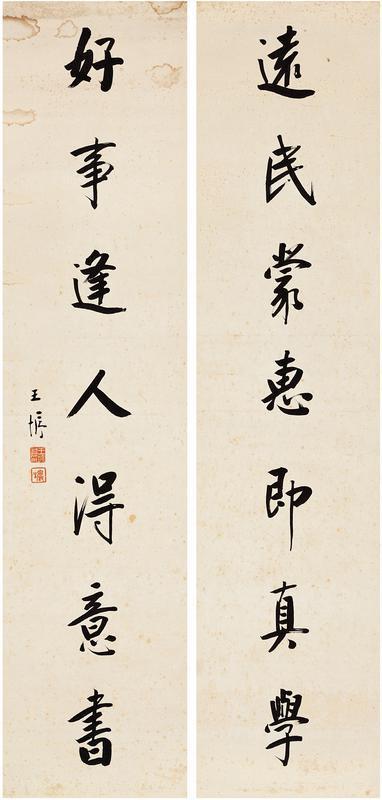 遠民蒙惠即真學
好事逢人得意書
王